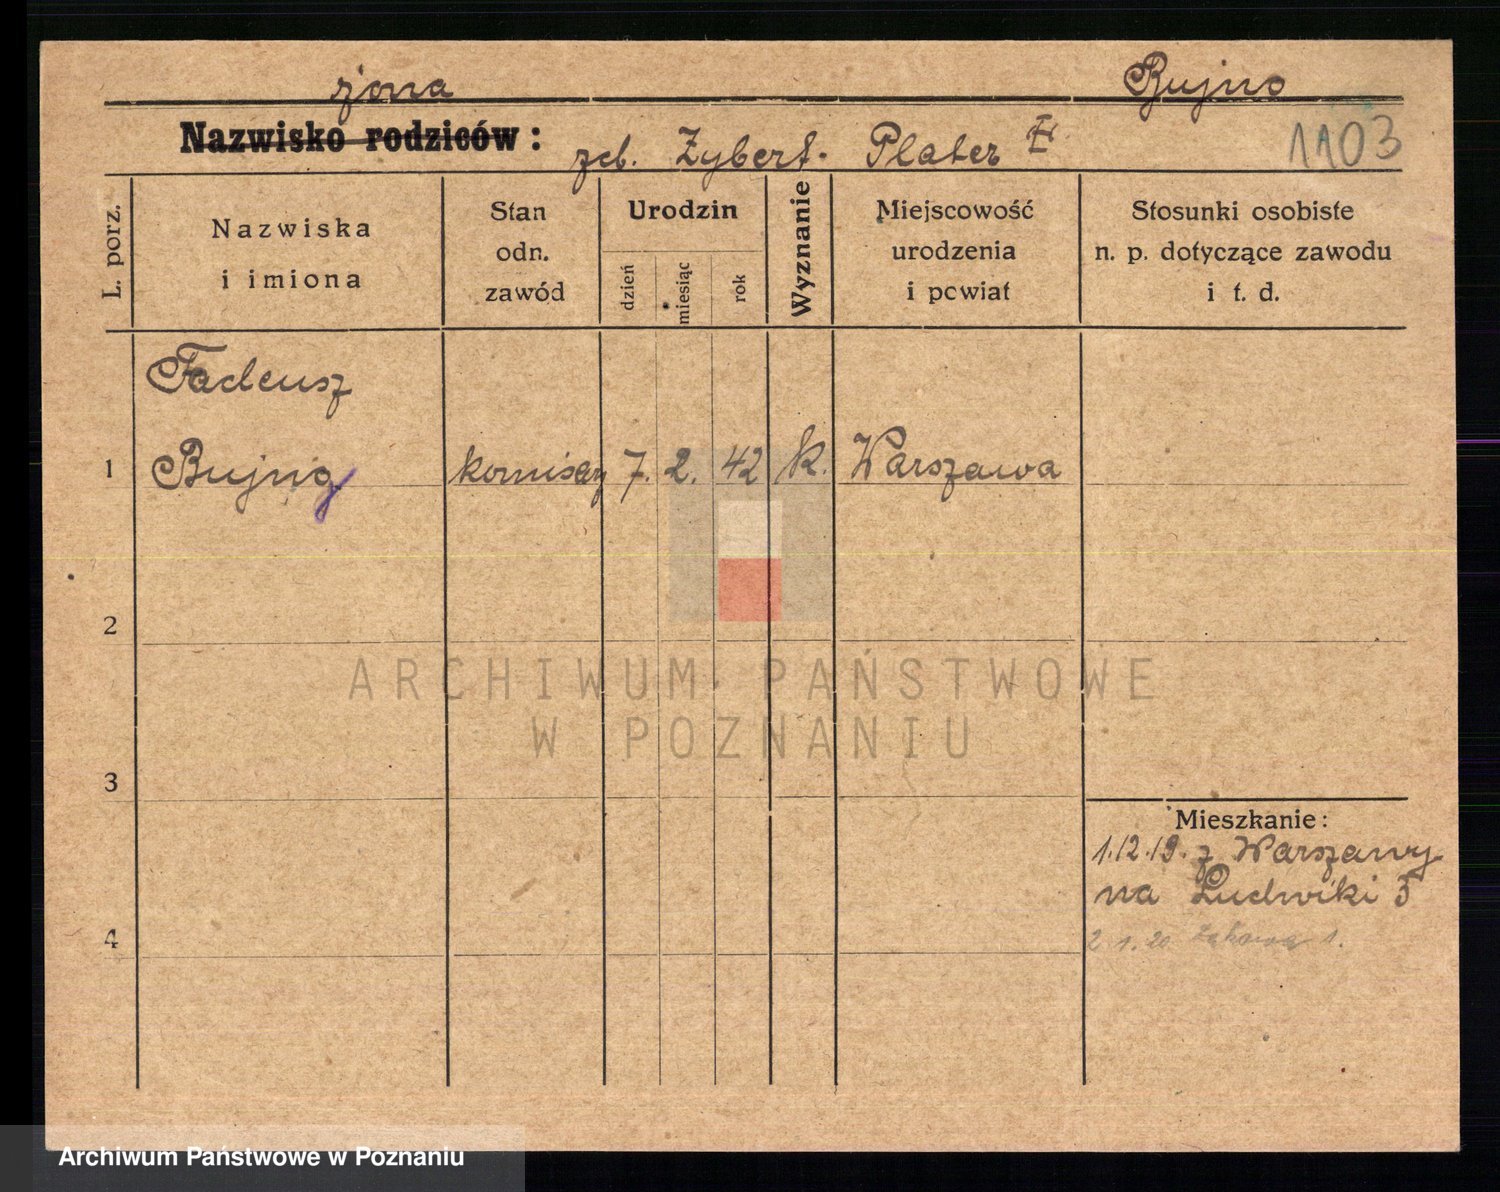 żona Bujno
Nazwisko rodziców: zeb. Zybert-Plater
1103
L. porz.
Nazwiska
i imiona
Stan
odn.
zawód
Urodzin
dzień
miesiąc
rok
Wyznanie
Miejscowość
urodzenia
i powiat
Stosunki osobiste
n. p. dotyczące zawodu
i t. d.
Tadeusz
1 Bujno komisarz 7. 2. 42 k. Warszawa
2
ARCHIWUM PAŃSTWOWE
W POZNANIU
3
Mieszkanie:
1.12.19. z Warszawy
na Ludwiki 5
4 2.1.20 Łąkowa 1.
Archiwum Państwowe w Poznaniu